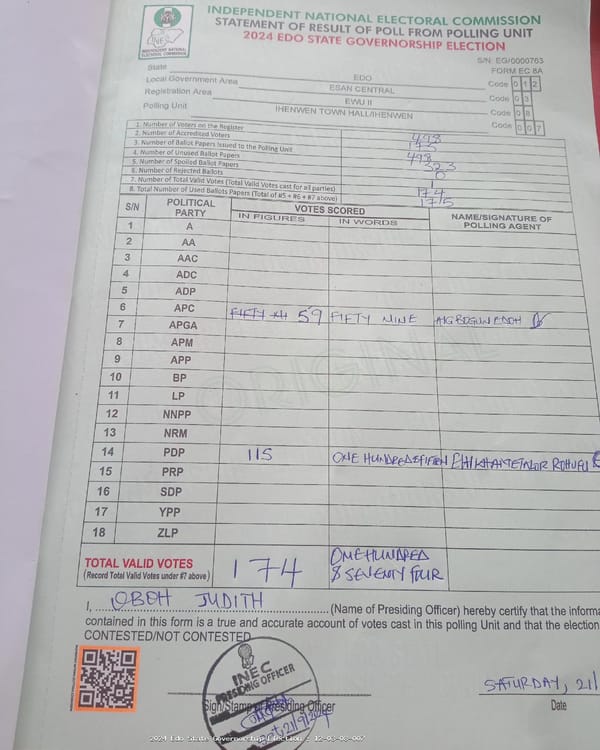 INDEPENDENT NATIONAL ELECTORAL COMMISSION
STATEMENT OF RESULT OF POLL FROM POLLING UNIT
2024 EDO STATE GOVERNORSHIP ELECTION
INEC
INDEPENDENT NATIONAL ELECTORAL COMMISSION
S/N: EG/0000763
FORM EC 8A
State EDO Code 0 1 2
Local Government Area ESAN CENTRAL Code 0 3
Registration Area EWU II Code 0 8
Polling Unit IHENWEN TOWN HALL/IHENWEN Code 0 0 7
1. Number of Voters on the Register 498
2. Number of Accredited Voters 175
3. Number of Ballot Papers Issued to the Polling Unit 498
4. Number of Unused Ballot Papers 323
5. Number of Spoiled Ballot Papers 0
6. Number of Rejected Ballots 1
7. Number of Total Valid Votes (Total Valid Votes cast for all parties) 174
8. Total Number of Used Ballots Papers (Total of #5 + #6 + #7 above) 175
S/N POLITICAL PARTY VOTES SCORED NAME/SIGNATURE OF POLLING AGENT
IN FIGURES IN WORDS
1 A
2 AA
3 AAC
4 ADC
5 ADP
6 APC FIFTY 59 FIFTY NINE
7 APGA
8 APM
9 APP
10 BP
11 LP
12 NNPP
13 NRM
14 PDP 115 ONE HUNDRED & FIFTEEN
15 PRP
16 SDP
17 YPP
18 ZLP
ORIGINAL
TOTAL VALID VOTES 174 ONE HUNDRED
(Record Total Valid Votes under #7 above) & SEVENTY FOUR
I, OBOH JUDITH (Name of Presiding Officer) hereby certify that the informa
contained in this form is a true and accurate account of votes cast in this polling Unit and that the election
CONTESTED/NOT CONTESTED
INEC
PRESIDING OFFICER
SATURDAY, 21/
Sign/Stamp of Presiding Officer Date
21/9/2024
2024 Edo State Governorship Election - 12-03-08-007